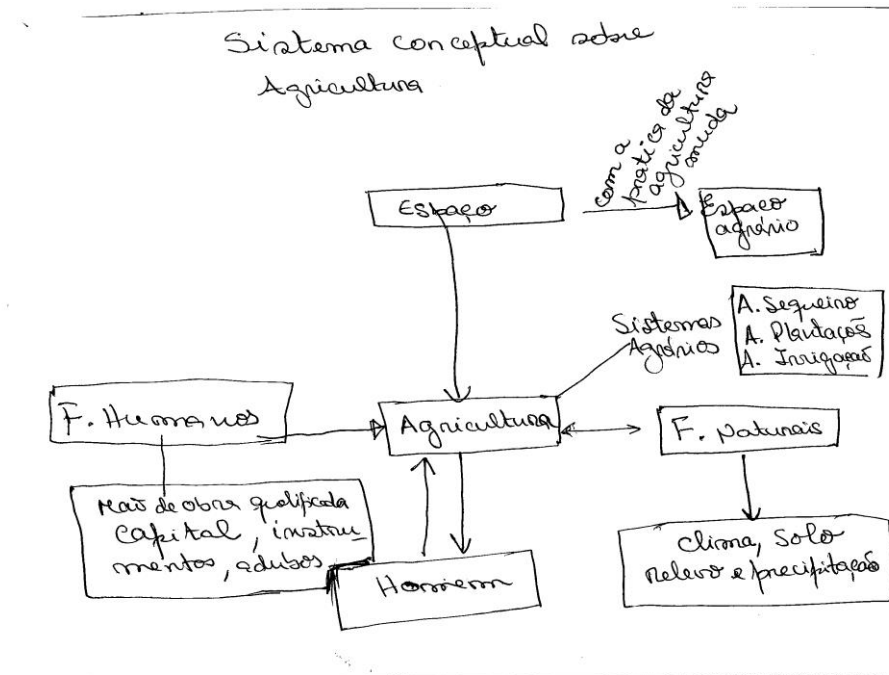 Sistema conceptual sobre
Agricultura
com a
pratica da
agricultura
muda
Espaço
Espaço
agrário
Sistemas
Agrários
A. Sequeiro
A. Plantações
A. Irrigação
F. Humanos
Agricultura
F. Naturais
Mão de obra qualificada
capital, instru-
mentos, adubos
Homem
Clima, Solo
relevo e precipitação